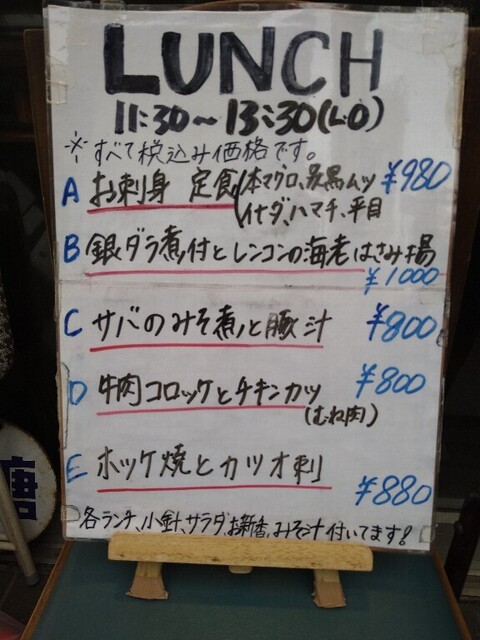 LUNCH
11:30～13:30(L.O)
※すべて税込み価格です。
A お刺身 定食(本マグロ、炙黒ムツ ¥980
イナダ、ハマチ、平目
B 銀ダラ煮付とレンコンの海老はさみ揚
¥1000
C サバのみそ煮と豚汁 ¥800
D 牛肉コロッケとチキンカツ ¥800
(むね肉)
E ホッケ焼とカツオ刺
¥880
各ランチ、小鉢、サラダ、お新香、みそ汁付いてます!
唐